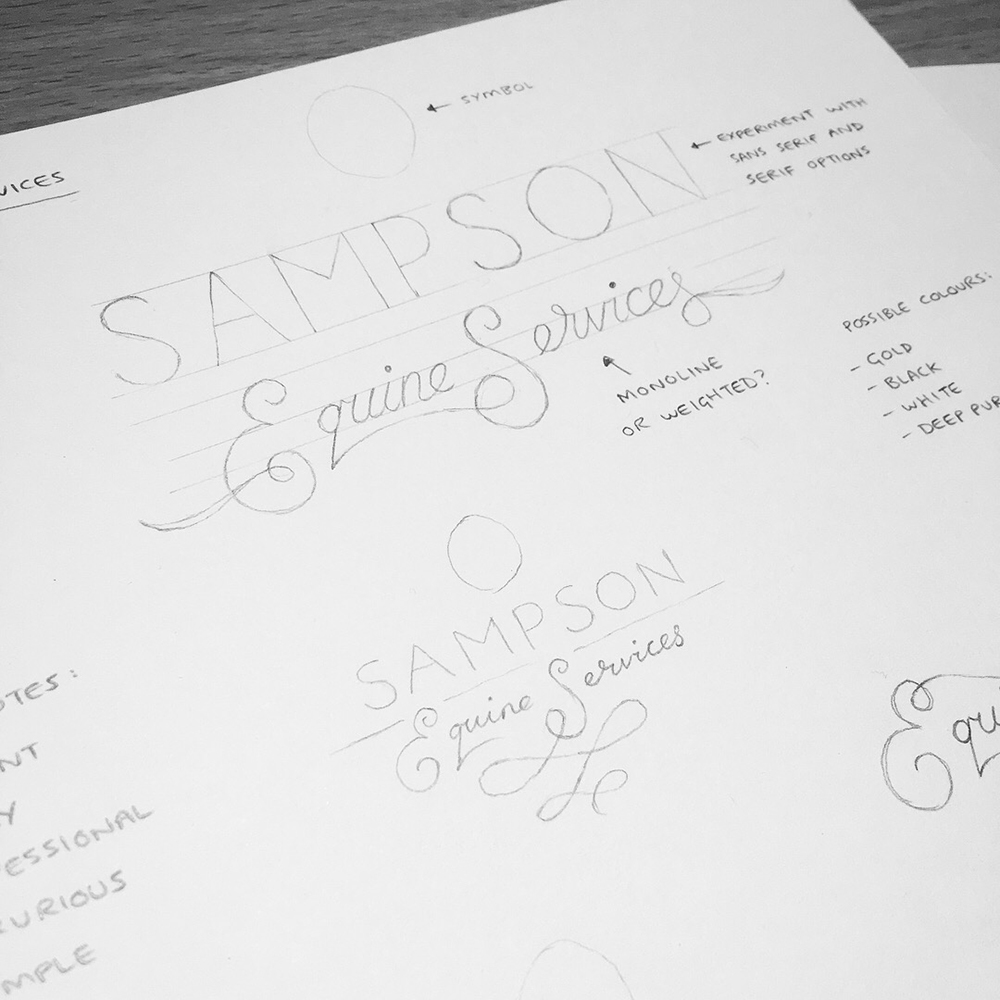 SYMBOL
EXPERIMENT WITH
SANS SERIF AND
SERIF OPTIONS
VICES
SAMPSON
Equine Services
MONOLINE
OR WEIGHTED?
POSSIBLE COLOURS:
- GOLD
- BLACK
- WHITE
- DEEP PUR
SAMPSON
Equine Services
OTES:
NT
Y
ESSIONAL
URIOUS
MPLE
Equi